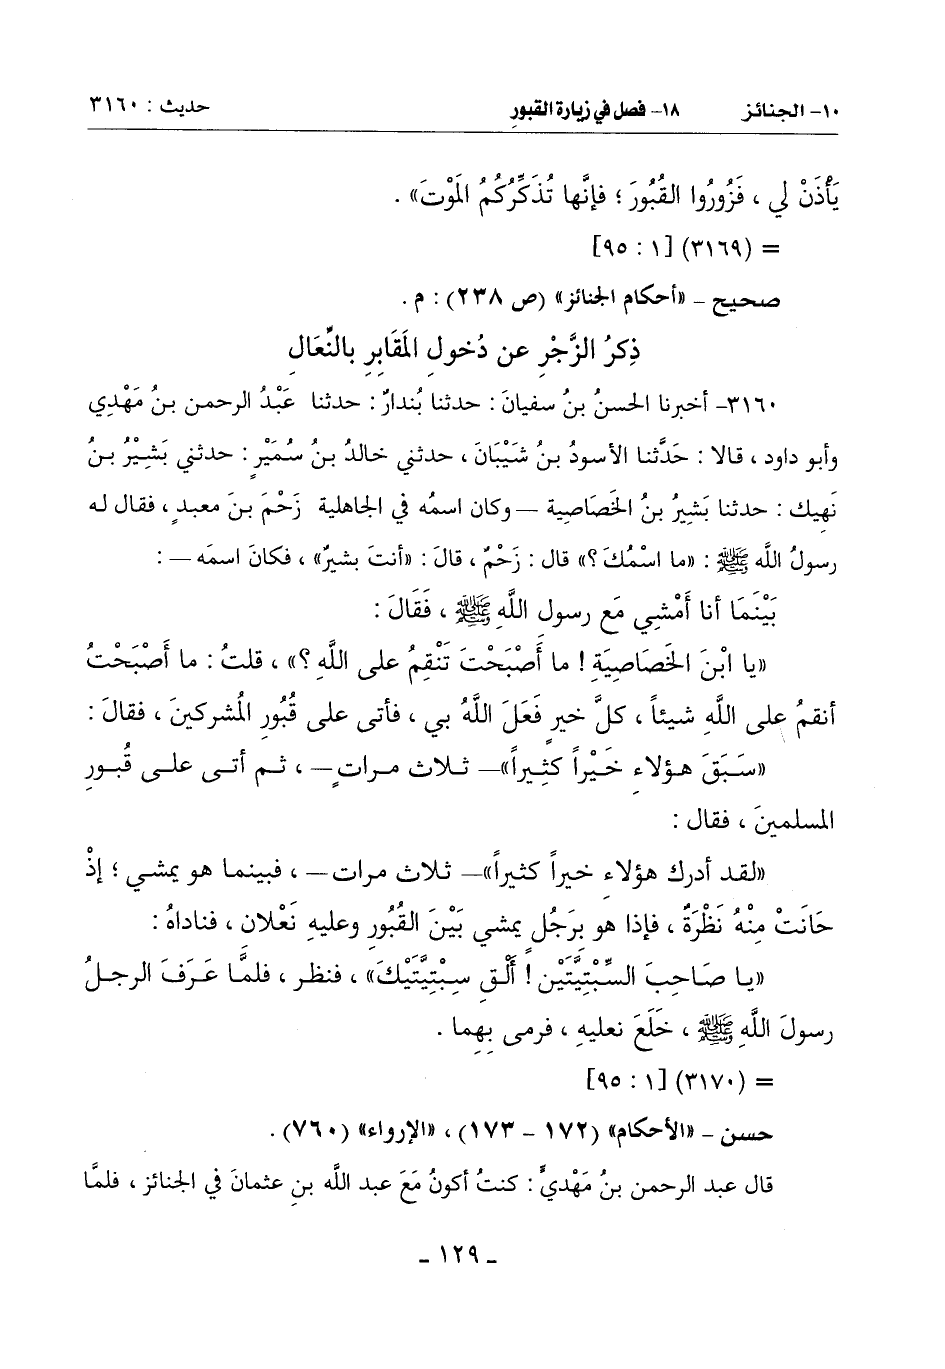 ١٠- الجنائز ١٨- فصل في زيارة القبور حديث : ٣١٦٠
يَأْذَنْ لي ، فَزُورُوا القُبُورَ ؛ فإنَّها تُذَكِّرُكُمُ المَوْتَ» .
= (٣١٦٩) [١ : ٩٥]
صحيح - «أحكام الجنائز» (ص ٢٣٨) : م .
ذِكرُ الزَّجْرِ عن دُخولِ المَقَابِرِ بالنِّعَالِ
٣١٦٠- أخبرنا الحسنُ بنُ سفيانَ : حدثنا بُندارٌ : حدثنا عَبْدُ الرحمن بنُ مَهْدِي
وأبو داود ، قالا : حَدَّثنا الأسودُ بنُ شَيْبَانَ ، حدثني خالدُ بنُ سُمَيْرٍ : حدثني بَشِيْرُ بنُ
نَهِيك : حدثنا بَشِيرُ بنُ الخَصَاصِية — وكان اسمُه في الجاهلية زَحْمَ بنَ معبدٍ ، فقال له
رسولُ اللَّه ﷺ : «ما اسْمُكَ ؟» قال : زَحْمٌ ، قالَ : «أنتَ بشيرٌ» ، فكانَ اسمَه — :
بَيْنَمَا أنا أَمْشِي مَع رسولِ اللَّهِ ﷺ ، فَقَالَ :
«يا ابْنَ الخَصَاصِيَةِ ! ما أَصْبَحْتَ تَنْقِمُ على اللَّهِ ؟» ، قلتُ : ما أَصْبَحْتُ
أنقمُ على اللَّهِ شيئاً ، كلَّ خيرٍ فَعَلَ اللَّهُ بي ، فأتى على قُبُورِ المُشركينَ ، فقالَ :
«سَبَقَ هؤلاءِ خَيْراً كثِيراً»— ثلاث مراتٍ— ، ثم أتى على قُبورِ
المسلمينَ ، فقال :
«لقد أدرك هؤلاءِ خيراً كثيراً»— ثلاث مرات— ، فبينما هو يمشي ؛ إذْ
حَانَتْ مِنْهُ نَظْرَةٌ ، فإذا هو بِرَجُلٍ يمشي بَيْنَ القُبُورِ وعليهِ نَعْلان ، فناداهُ :
«يا صَاحِبَ السِّبْتِيَّتَيْنِ ! أَلْقِ سِبْتِيَّتَيْكَ» ، فنظر ، فلمَّا عَرَفَ الرجلُ
رسولَ اللَّهِ ﷺ ، خَلَعَ نعليهِ ، فرمى بِهِما .
= (٣١٧٠) [١ : ٩٥]
حسن - «الأحكام» (١٧٢ - ١٧٣) ، «الإرواء» (٧٦٠) .
قال عبد الرحمن بنُ مَهْديٍّ : كنتُ أكونُ مَعَ عبد الله بنِ عثمانَ في الجنائز ، فلمَّا
- ١٢٩ -